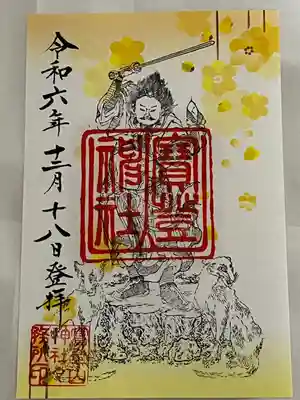 寶登山
神社
令和六年十二月十八日登拝
寶登山
神社社
務所印